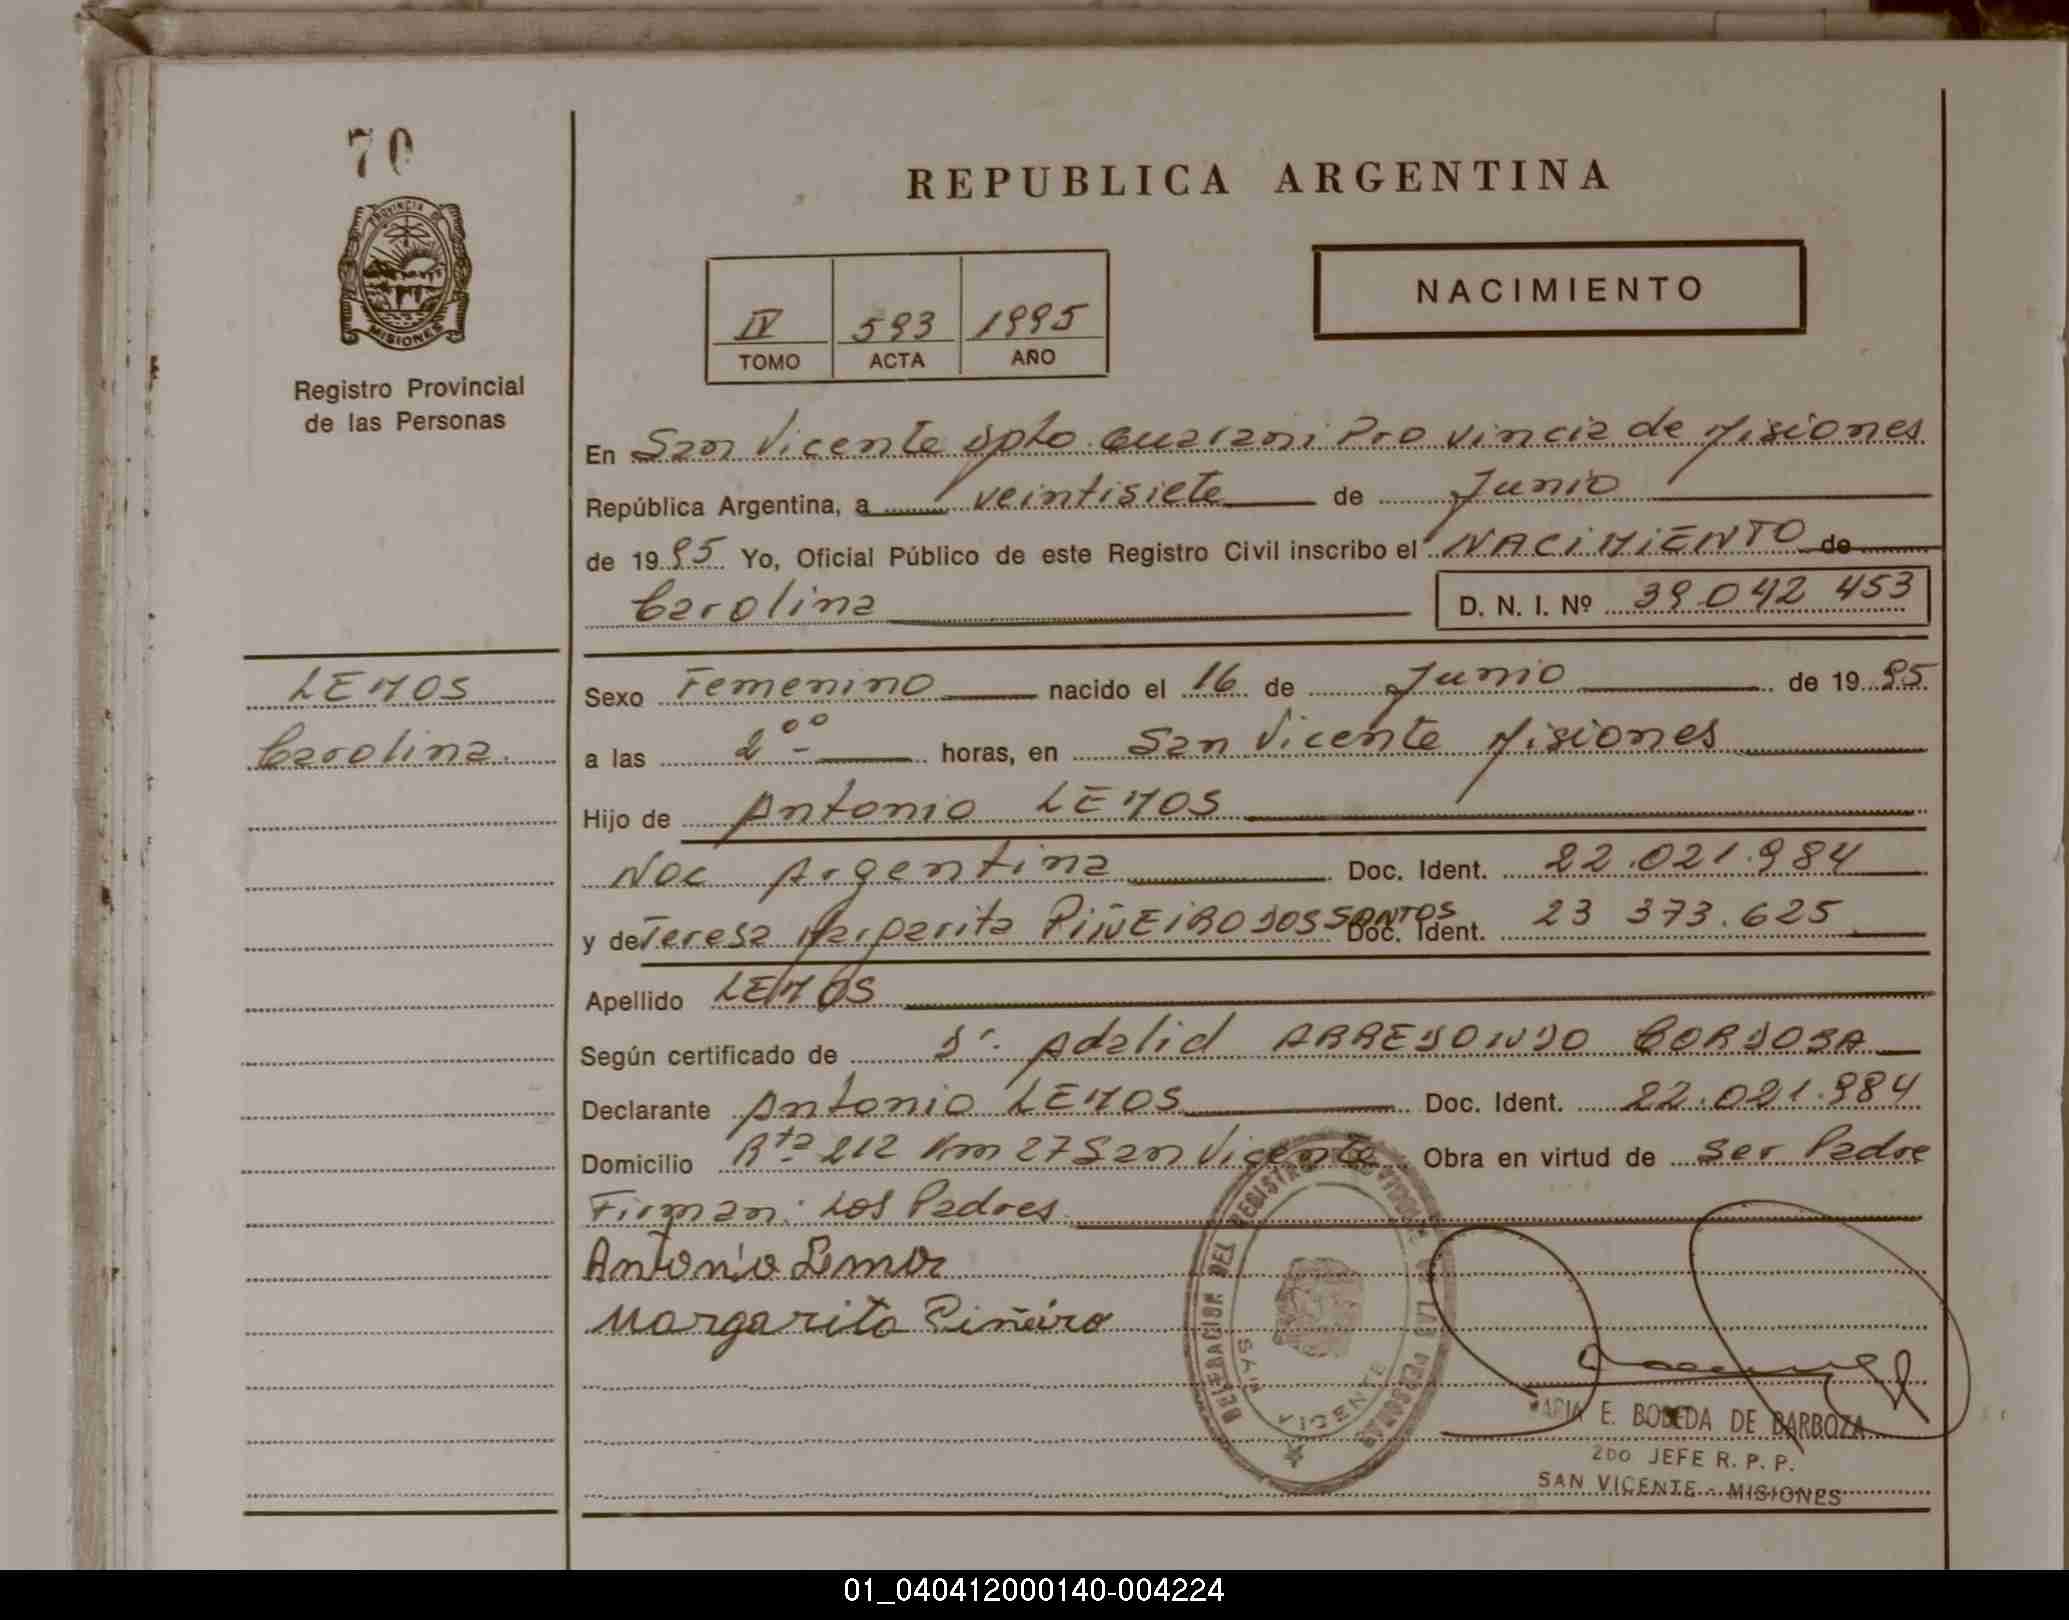 70
PROVINCIA DE
MISIONES
Registro Provincial
de las Personas
REPUBLICA ARGENTINA
IV 593 1995
TOMO ACTA AÑO
NACIMIENTO
En San Vicente Dpto Guarani Provincia de Misiones
República Argentina, a veintisiete de Junio
de 1995 Yo, Oficial Público de este Registro Civil inscribo el NACIMIENTO de
Carolina D. N. I. Nº 39 042 453
LEMOS
Carolina.
Sexo Femenino nacido el 16 de Junio de 1995
a las 2⁰⁰ horas, en San Vicente Misiones
Hijo de Antonio LEMOS
Nac Argentina Doc. Ident. 22.021.984
y de Teresa Margarita PIÑEIRO DOS SANTOS Doc. Ident. 23 373.625
Apellido LEMOS
Según certificado de Dr. Adalid ARREDONDO CORDOBA
Declarante Antonio LEMOS Doc. Ident. 22.021.984
Domicilio Rta 212 Km 27 San Vicente Obra en virtud de Ser Padre
Firman: Los Padres
Antonio Lemos
Margarita Piñeiro
DELEGACION DEL REGISTRO PROVINCIAL DE LAS PERSONAS
SAN VICENTE
MARIA E. BOBEDA DE BARBOZA
2DO JEFE R. P. P.
SAN VICENTE - MISIONES
01_040412000140-004224